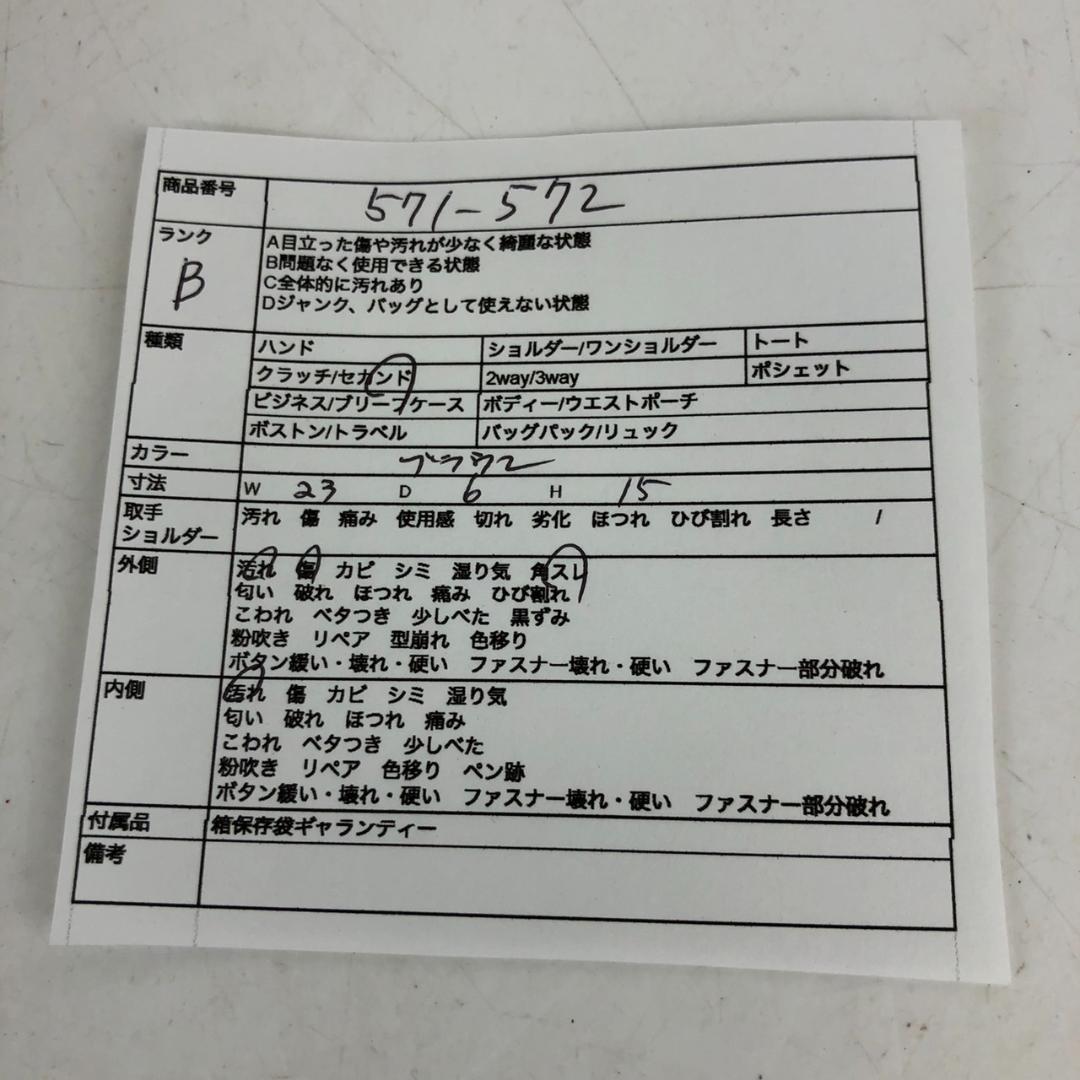 商品番号 571-572
ランク B
A目立った傷や汚れが少なく綺麗な状態
B問題なく使用できる状態
C全体的に汚れあり
Dジャンク、バッグとして使えない状態
種類 ハンド ショルダー/ワンショルダー トート
クラッチ/セカンド 2way/3way ポシェット
ビジネス/ブリーフケース ボディー/ウエストポーチ
ボストン/トラベル バッグパック/リュック
カラー ブラウン
寸法 W 23 D 6 H 15
取手 汚れ 傷 痛み 使用感 切れ 劣化 ほつれ ひび割れ 長さ /
ショルダー
外側 汚れ 傷 カビ シミ 湿り気 角スレ
匂い 破れ ほつれ 痛み ひび割れ
こわれ ベタつき 少しべた 黒ずみ
粉吹き リペア 型崩れ 色移り
ボタン緩い・壊れ・硬い ファスナー壊れ・硬い ファスナー部分破れ
内側 汚れ 傷 カビ シミ 湿り気
匂い 破れ ほつれ 痛み
こわれ ベタつき 少しべた
粉吹き リペア 色移り ペン跡
ボタン緩い・壊れ・硬い ファスナー壊れ・硬い ファスナー部分破れ
付属品 箱保存袋ギャランティー
備考